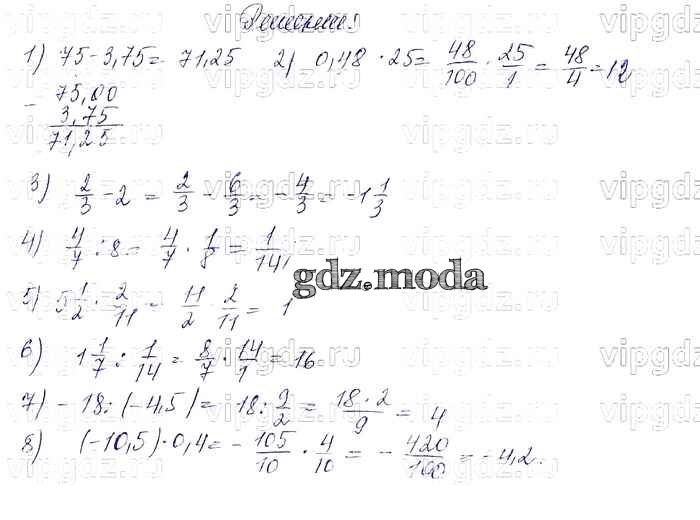 Решение:
1) 75-3,75= 71,25 2) 0,48 · 25= 48/100 · 25/1 = 48/4 = 12
- 75,00
3,75
71,25
3) 2/3 - 2 = 2/3 - 6/3 = - 4/3 = -1 1/3
4) 4/7 : 8 = 4/7 · 1/8 = 1/14
gdz.moda
5) 5 1/2 · 2/11 = 11/2 · 2/11 = 1
6) 1 1/7 : 1/14 = 8/7 · 14/1 = 16
7) - 18 : (-4,5) = 18 : 9/2 = 18 · 2/9 = 4
8) (-10,5) · 0,4 = - 105/10 · 4/10 = - 420/100 = - 4,2.
vipgdz.ru